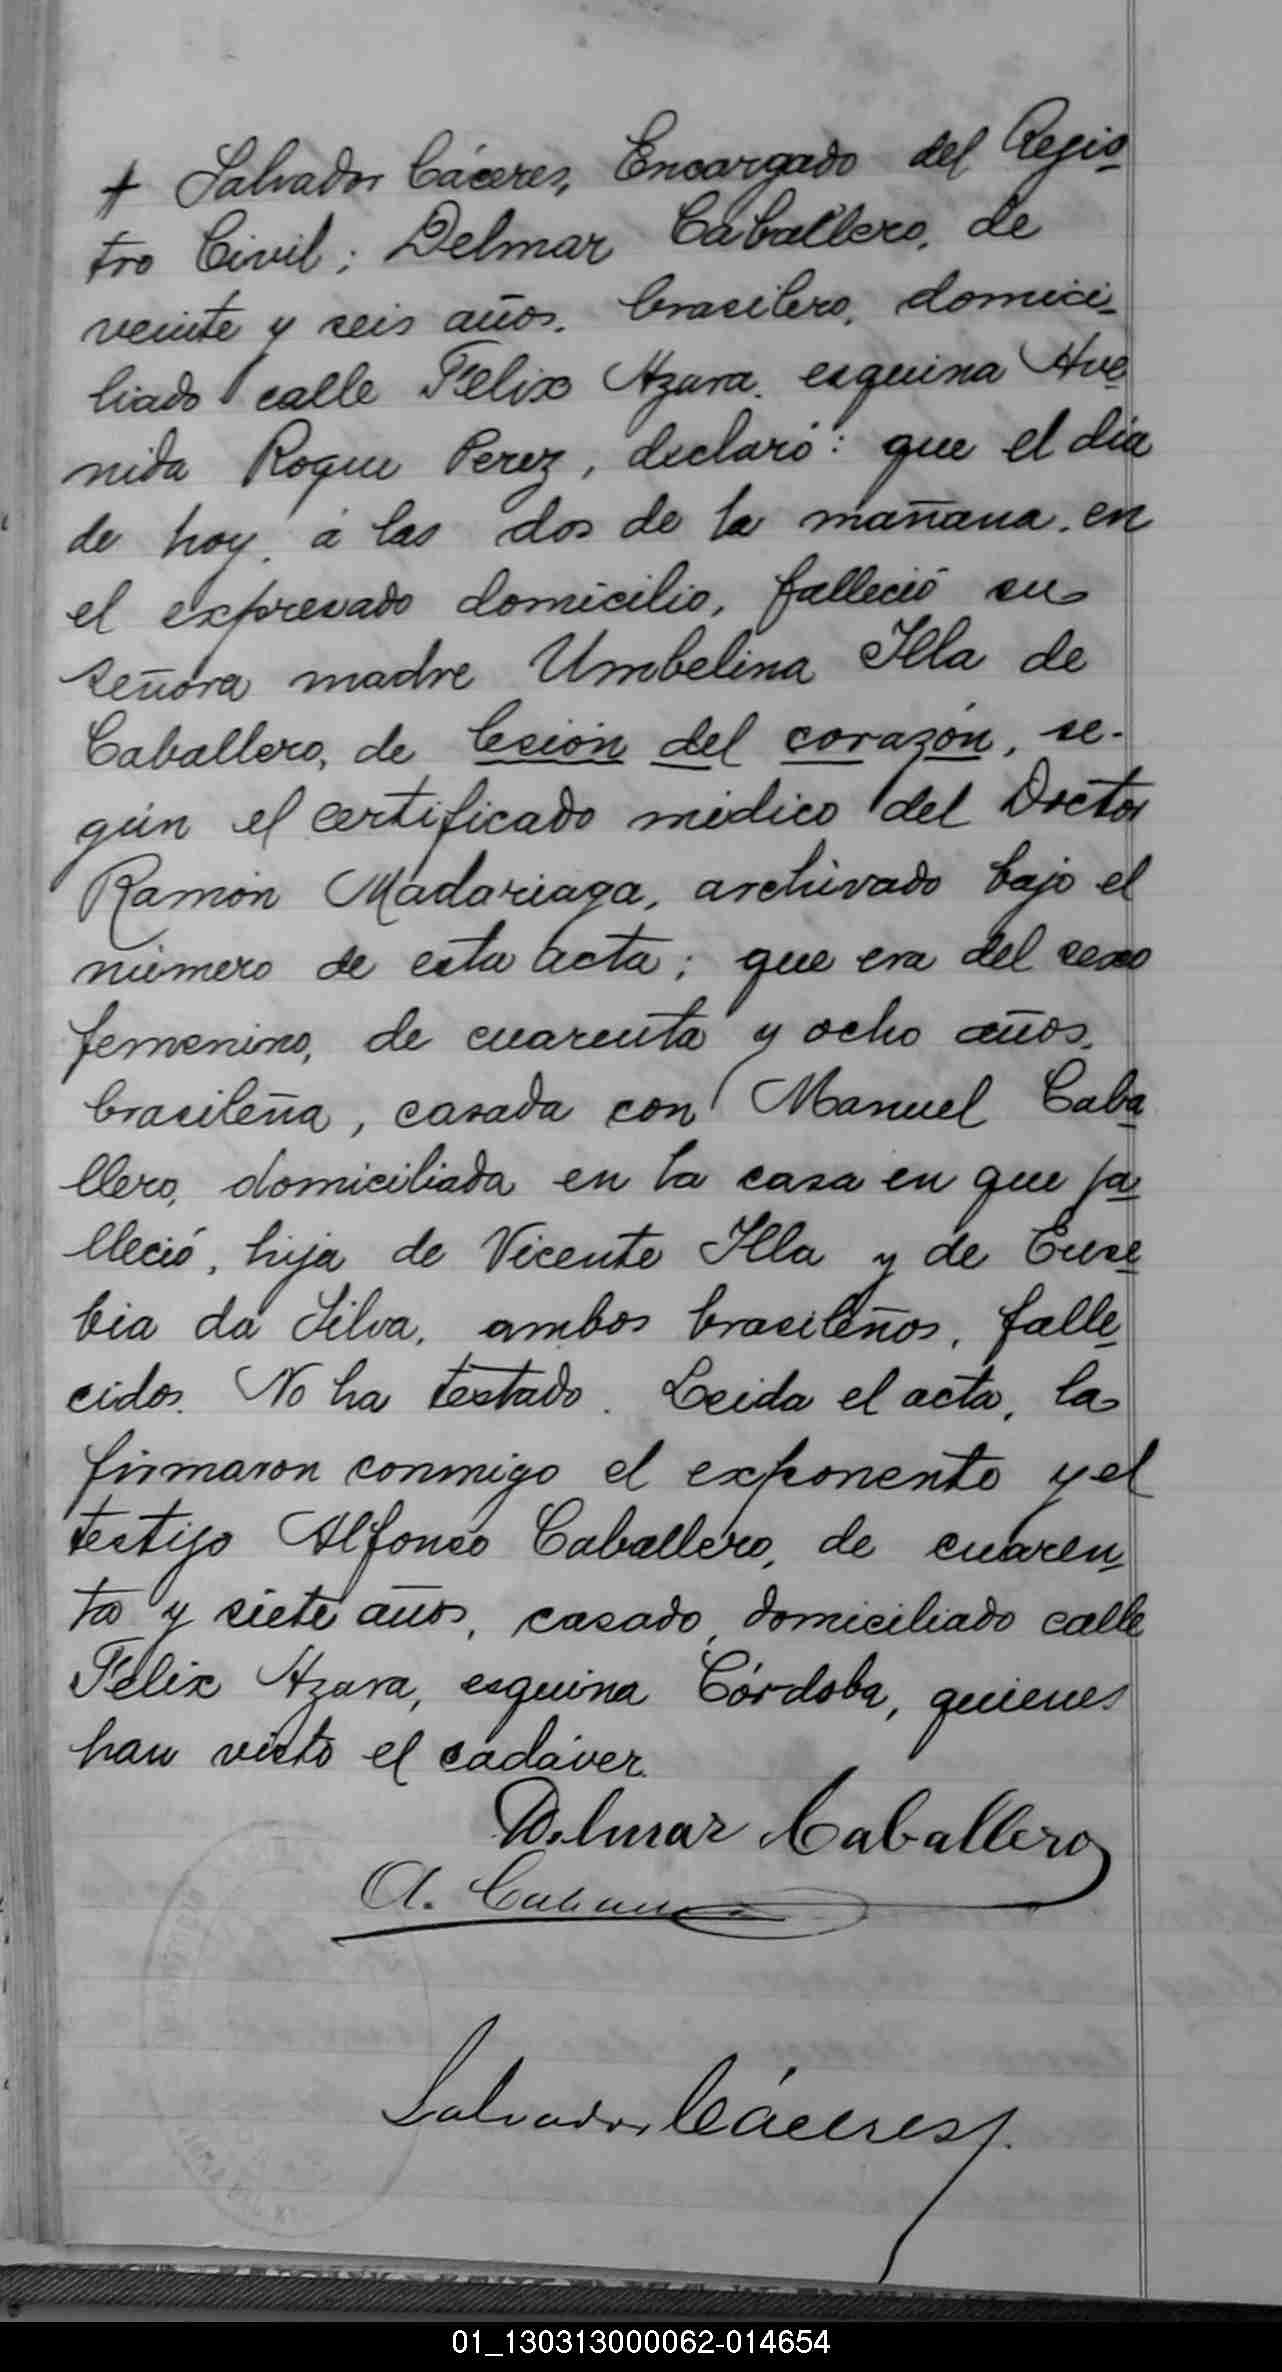 + Salvador Cáceres, Encargado del Regis-
tro Civil; Delmar Caballero, de
veinte y seis años, brasilero, domici-
liado calle Felix Azara, esquina Ave-
nida Roque Perez, declaró: que el dia
de hoy, á las dos de la mañana, en
el expresado domicilio, falleció su
señora madre Umbelina Illa de
Caballero, de lesión del corazón, se-
gún el certificado médico del Doctor
Ramón Madariaga, archivado bajo el
número de esta acta; que era del sexo
femenino, de cuarenta y ocho años,
brasileña, casada con Manuel Caba-
llero, domiciliada en la casa en que fa-
lleció, hija de Vicente Illa y de Euse-
bia da Silva, ambos brasileños, falle-
cidos. No ha testado. Leida el acta, la
firmaron conmigo el exponente y el
testigo Alfonso Caballero, de cuaren-
ta y siete años, casado, domiciliado calle
Felix Azara, esquina Córdoba, quienes
han visto el cadáver.
Delmar Caballero
A. Caballero
Salvador Cáceres
01_130313000062-014654